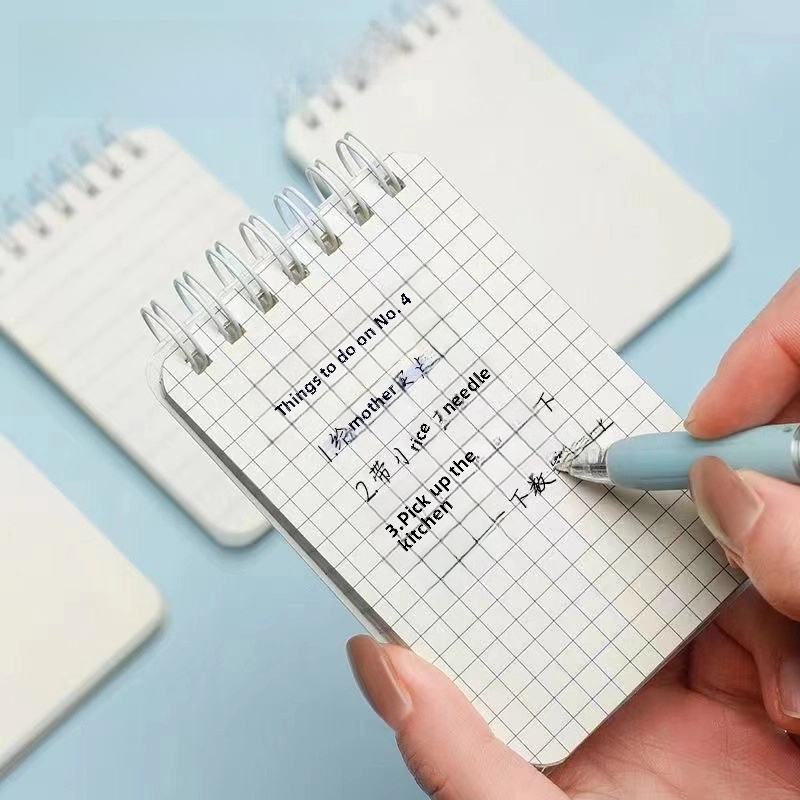 Things to do on No. 4
1.给mother买
2.带小rice needle
3.Pick up the
kitchen
下
一下数